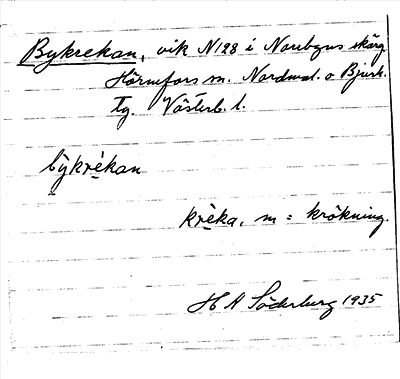 Bykrekan, vik N128 i Norrbyns skärg.
Hörnefors sn. Nordmal. o Bjurh.
tg. Västerb. l.
bykrèkan
krèka, m = krökning.
H A Söderberg 1935